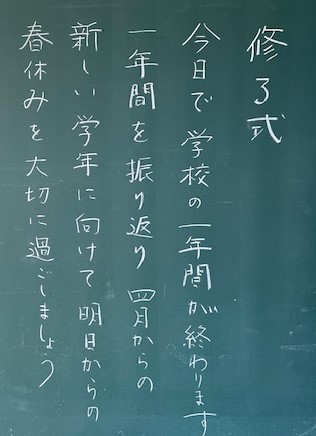 修了式
今日で学校の一年間が終わります
一年間を振り返り四月からの
新しい学年に向けて明日からの
春休みを大切に過ごしましょう